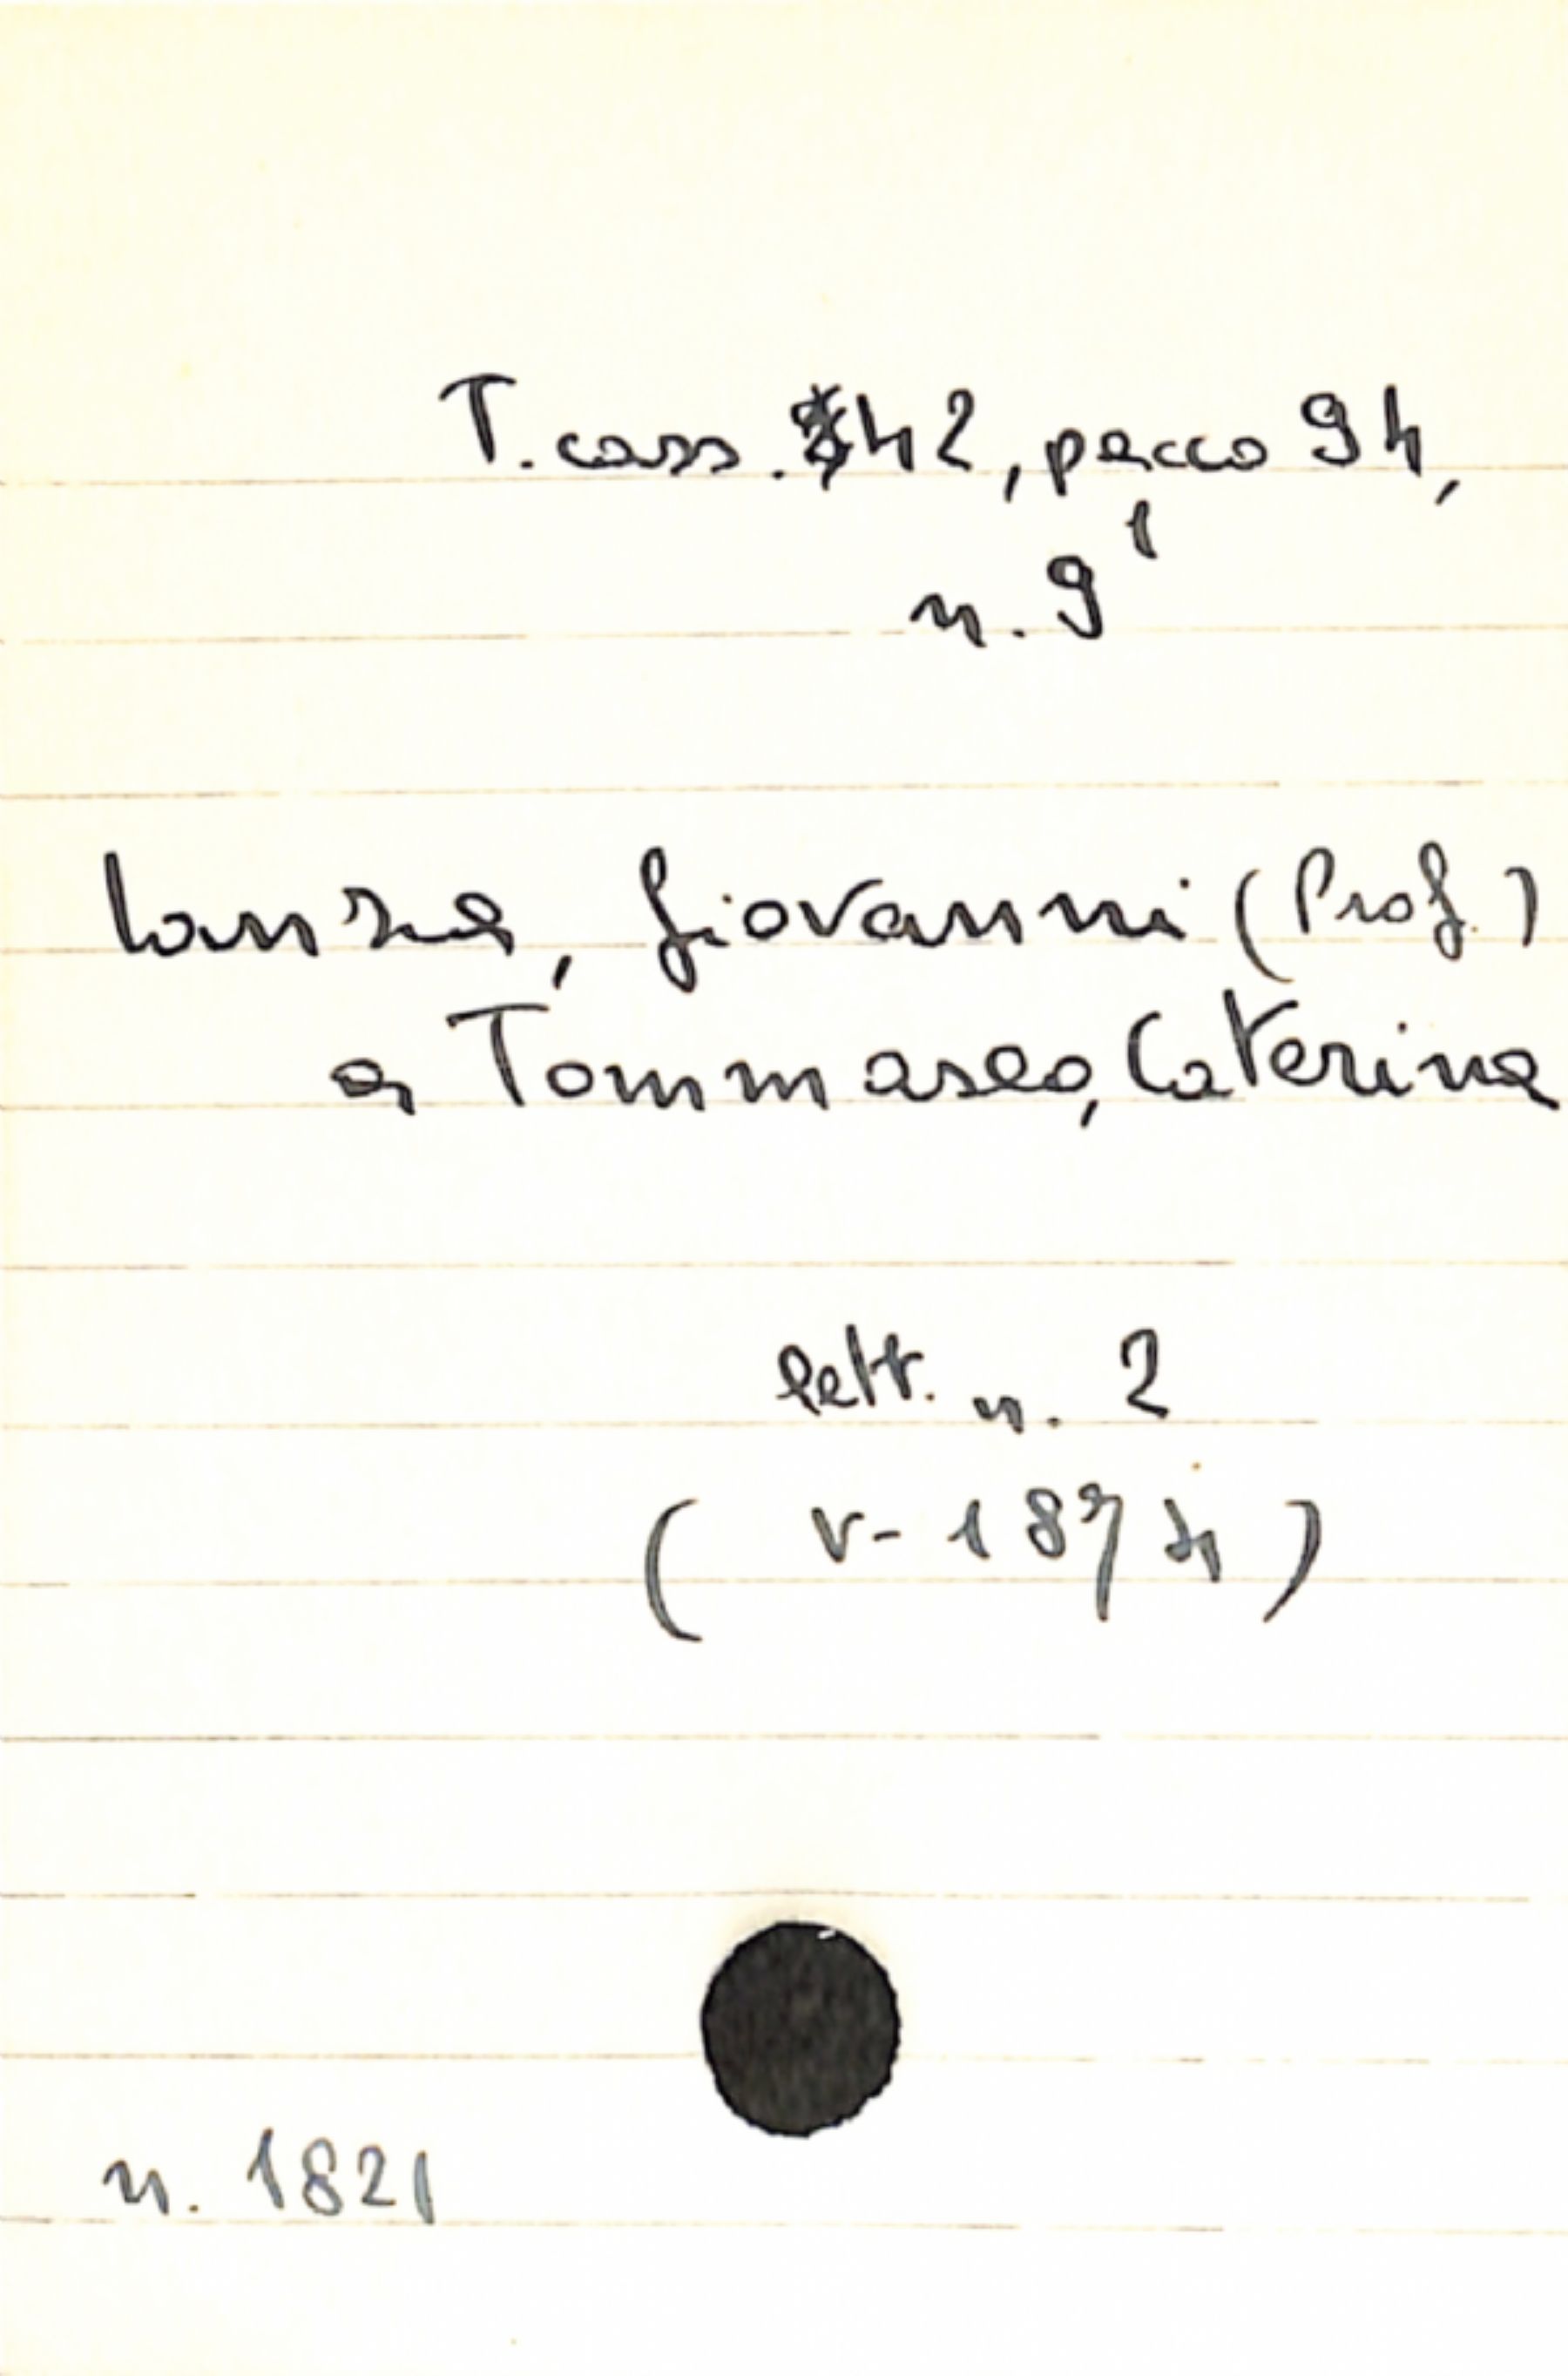 T. cass. 42, pacco 94,
n. 9¹
Lanza, Giovanni (Prof.)
a Tommaseo, Caterina
lett. n. 2
( V - 1874 )
n. 1821